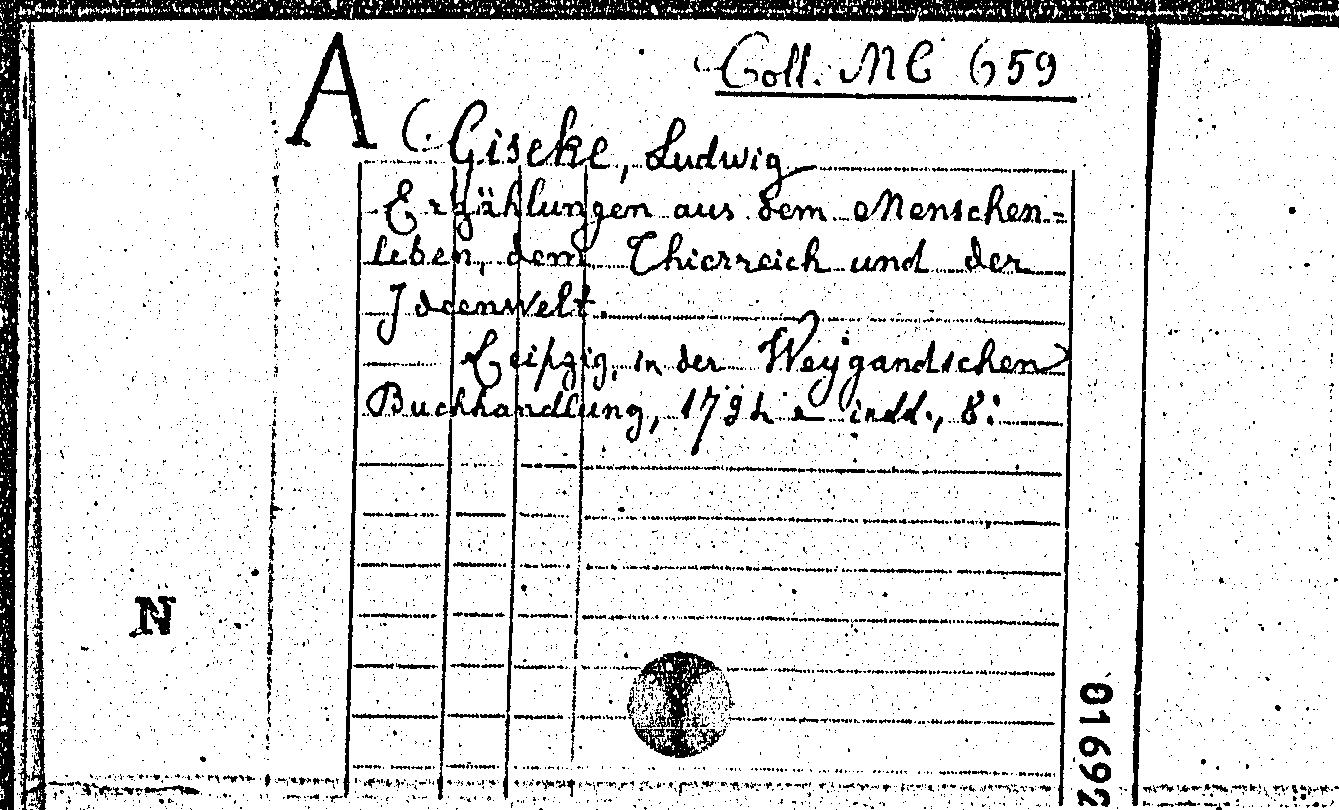 A
Coll. MC 659
Giseke, Ludwig
Erzählungen aus dem Menschen=
leben, dem Thierreich und der
Ideenwelt.
Leipzig, in der Weygandschen
Buchhandlung, 8:
N
01692